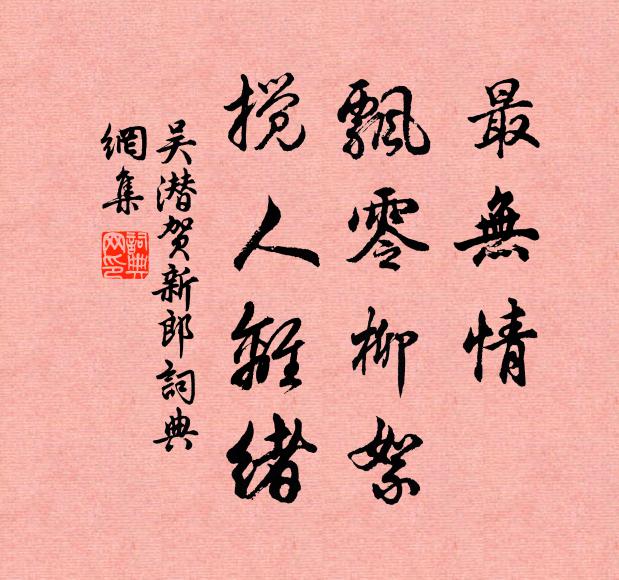 最無情
飄零柳絮
搅人離緒
吴潜贺新郎詞典
網集
詞典
网印